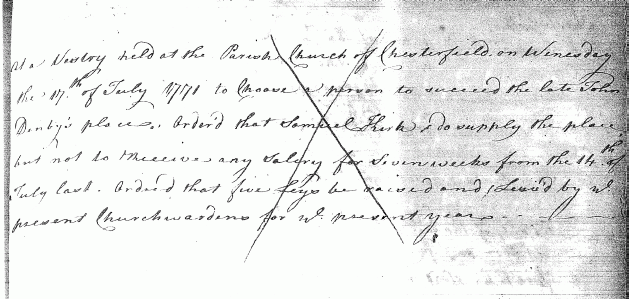 At a Vestry held at the Parish Church of Chesterfield on Wenesday
the 17.th of July 1771 to Choose a person to succeed the late John
Denby's place. Order'd that Samuel Kirk do supply the place
but not to Receive any Salery for Seven weeks from the 14.th of
July last. Order'd that five Leys be raised and Levi'd by ye.
present Churchwardens for ye. present year